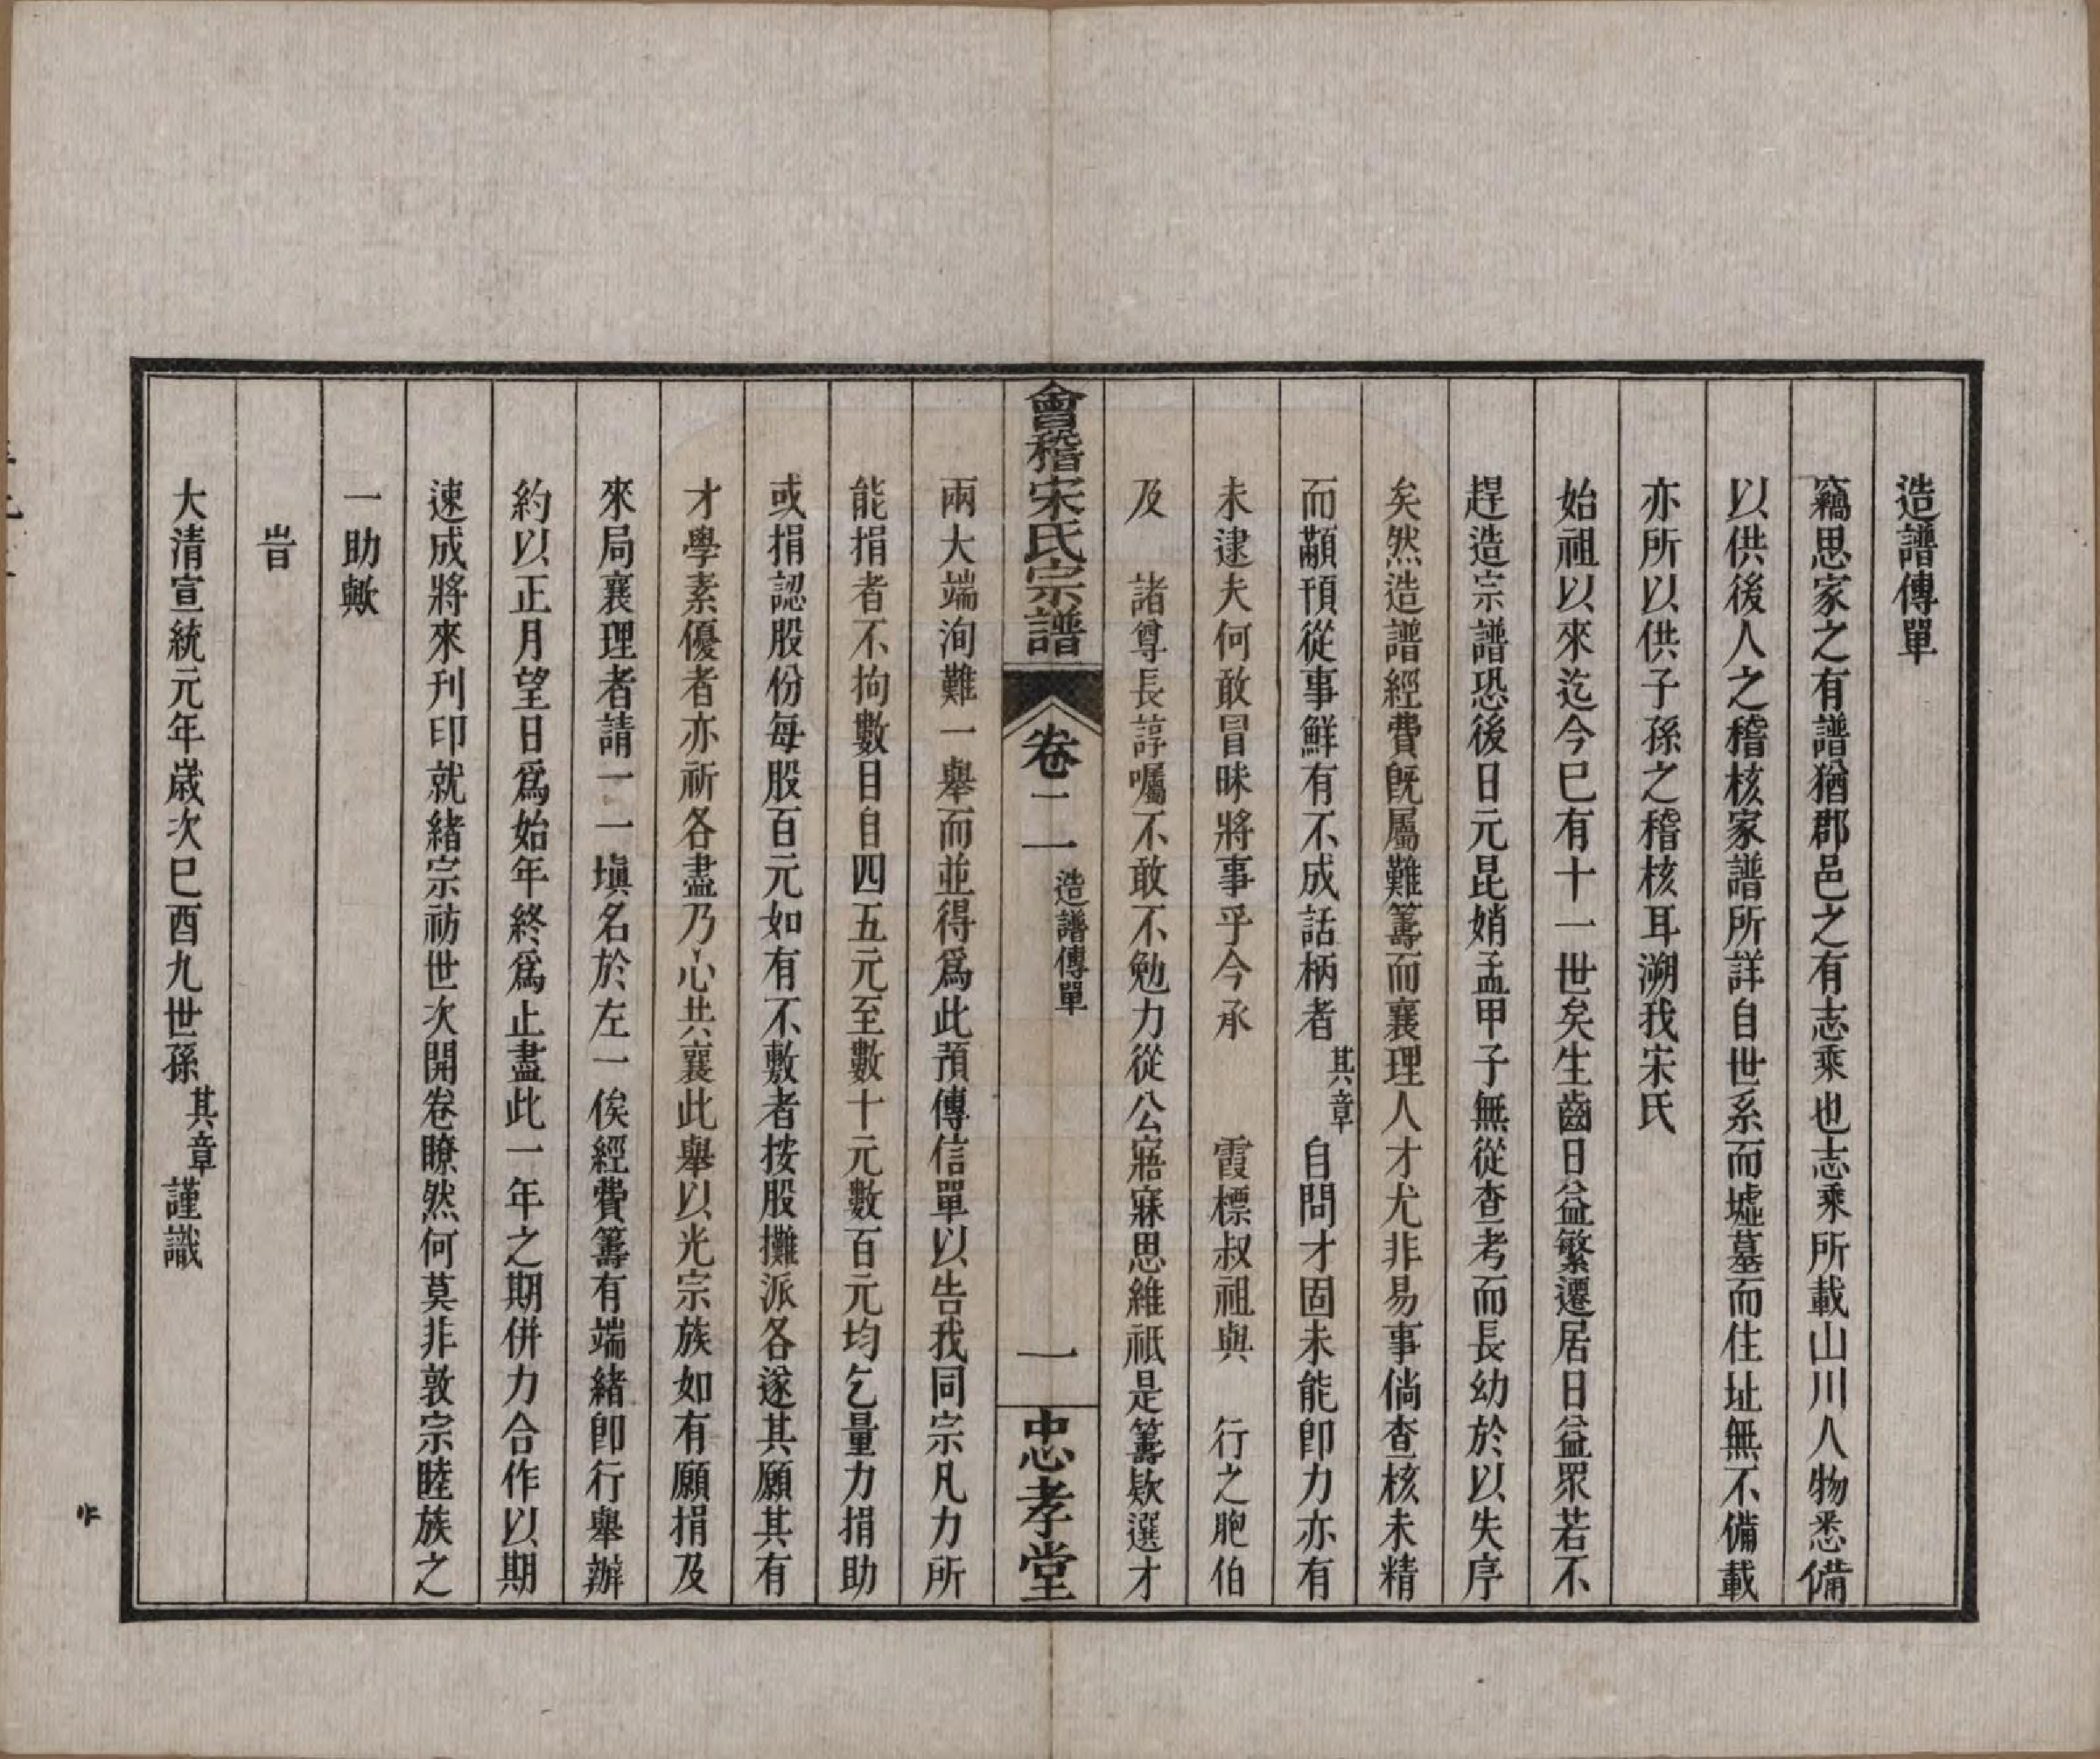 造譜傳單
竊思家之有譜猶郡邑之有志乘也志乘所載山川人物悉備
以供後人之稽核家譜所詳自世系而墟墓而住址無不備載
亦所以供子孫之稽核耳溯我宋氏
始祖以來迄今巳有十一世矣生齒日益繁遷居日益眾若不
趕造宗譜恐後日元昆娋孟甲子無從查考而長幼於以失序
矣然造譜經費旣屬難籌而襄理人才尤非易事倘查核未精
而顢頇從事鮮有不成話柄者其章自問才固未能卽力亦有
未逮夫何敢冒昧將事乎今承 霞標叔祖與 行之胞伯
及 諸尊長諄囑不敢不勉力從公寤寐思維祗是籌欵選才
會稽宋氏宗譜 卷二 一 造譜傳單 一 忠孝堂
兩大端洵難一舉而並得爲此預傳信單以告我同宗凡力所
能捐者不拘數目自四五元至數十元數百元均乞量力捐助
或捐認股份每股百元如有不敷者按股攤派各遂其願其有
才學素優者亦祈各盡乃心共襄此舉以光宗族如有願捐及
來局襄理者請一一塡名於左一俟經費籌有端緒卽行舉辦
約以正月望日爲始年終爲止盡此一年之期併力合作以期
速成將來刊印就緒宗祊世次開卷瞭然何莫非敦宗睦族之
一助歟
旹
大清宣統元年嵗次巳酉九世孫其章謹識